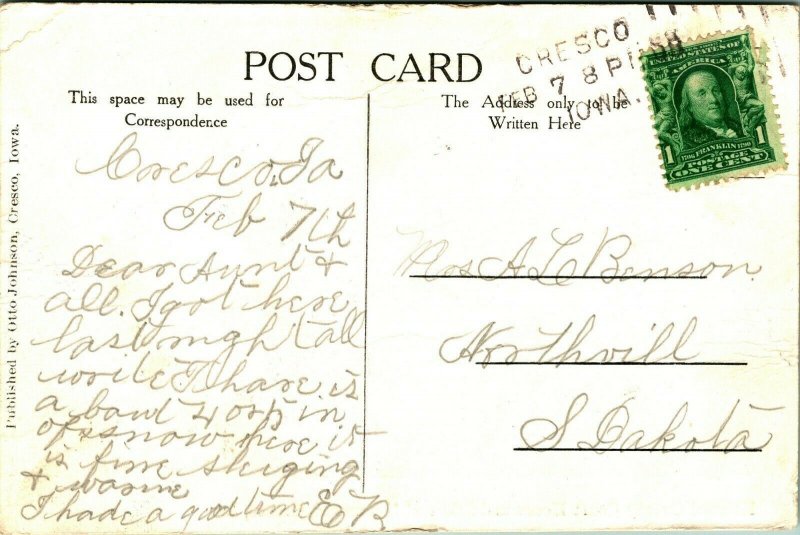 POST CARD
This space may be used for
Correspondence
The Address only to be
Written Here
CRESCO
FEB 7 8 PM '08
IOWA.
UNITED STATES OF
AMERICA
1 1
1706 FRANKLIN 1790
POSTAGE
ONE CENT
Published by Otto Johnson, Cresco, Iowa.
Cresco, Ia
Feb 7th
Dear Aunt &
all. I got here
last night all
write Thare is
a bowt 4 or 5 in
of snow here it
is fine sleiging
& warme
I hade a good time E B
Mrs A L Benson
Northvill
S Dakota